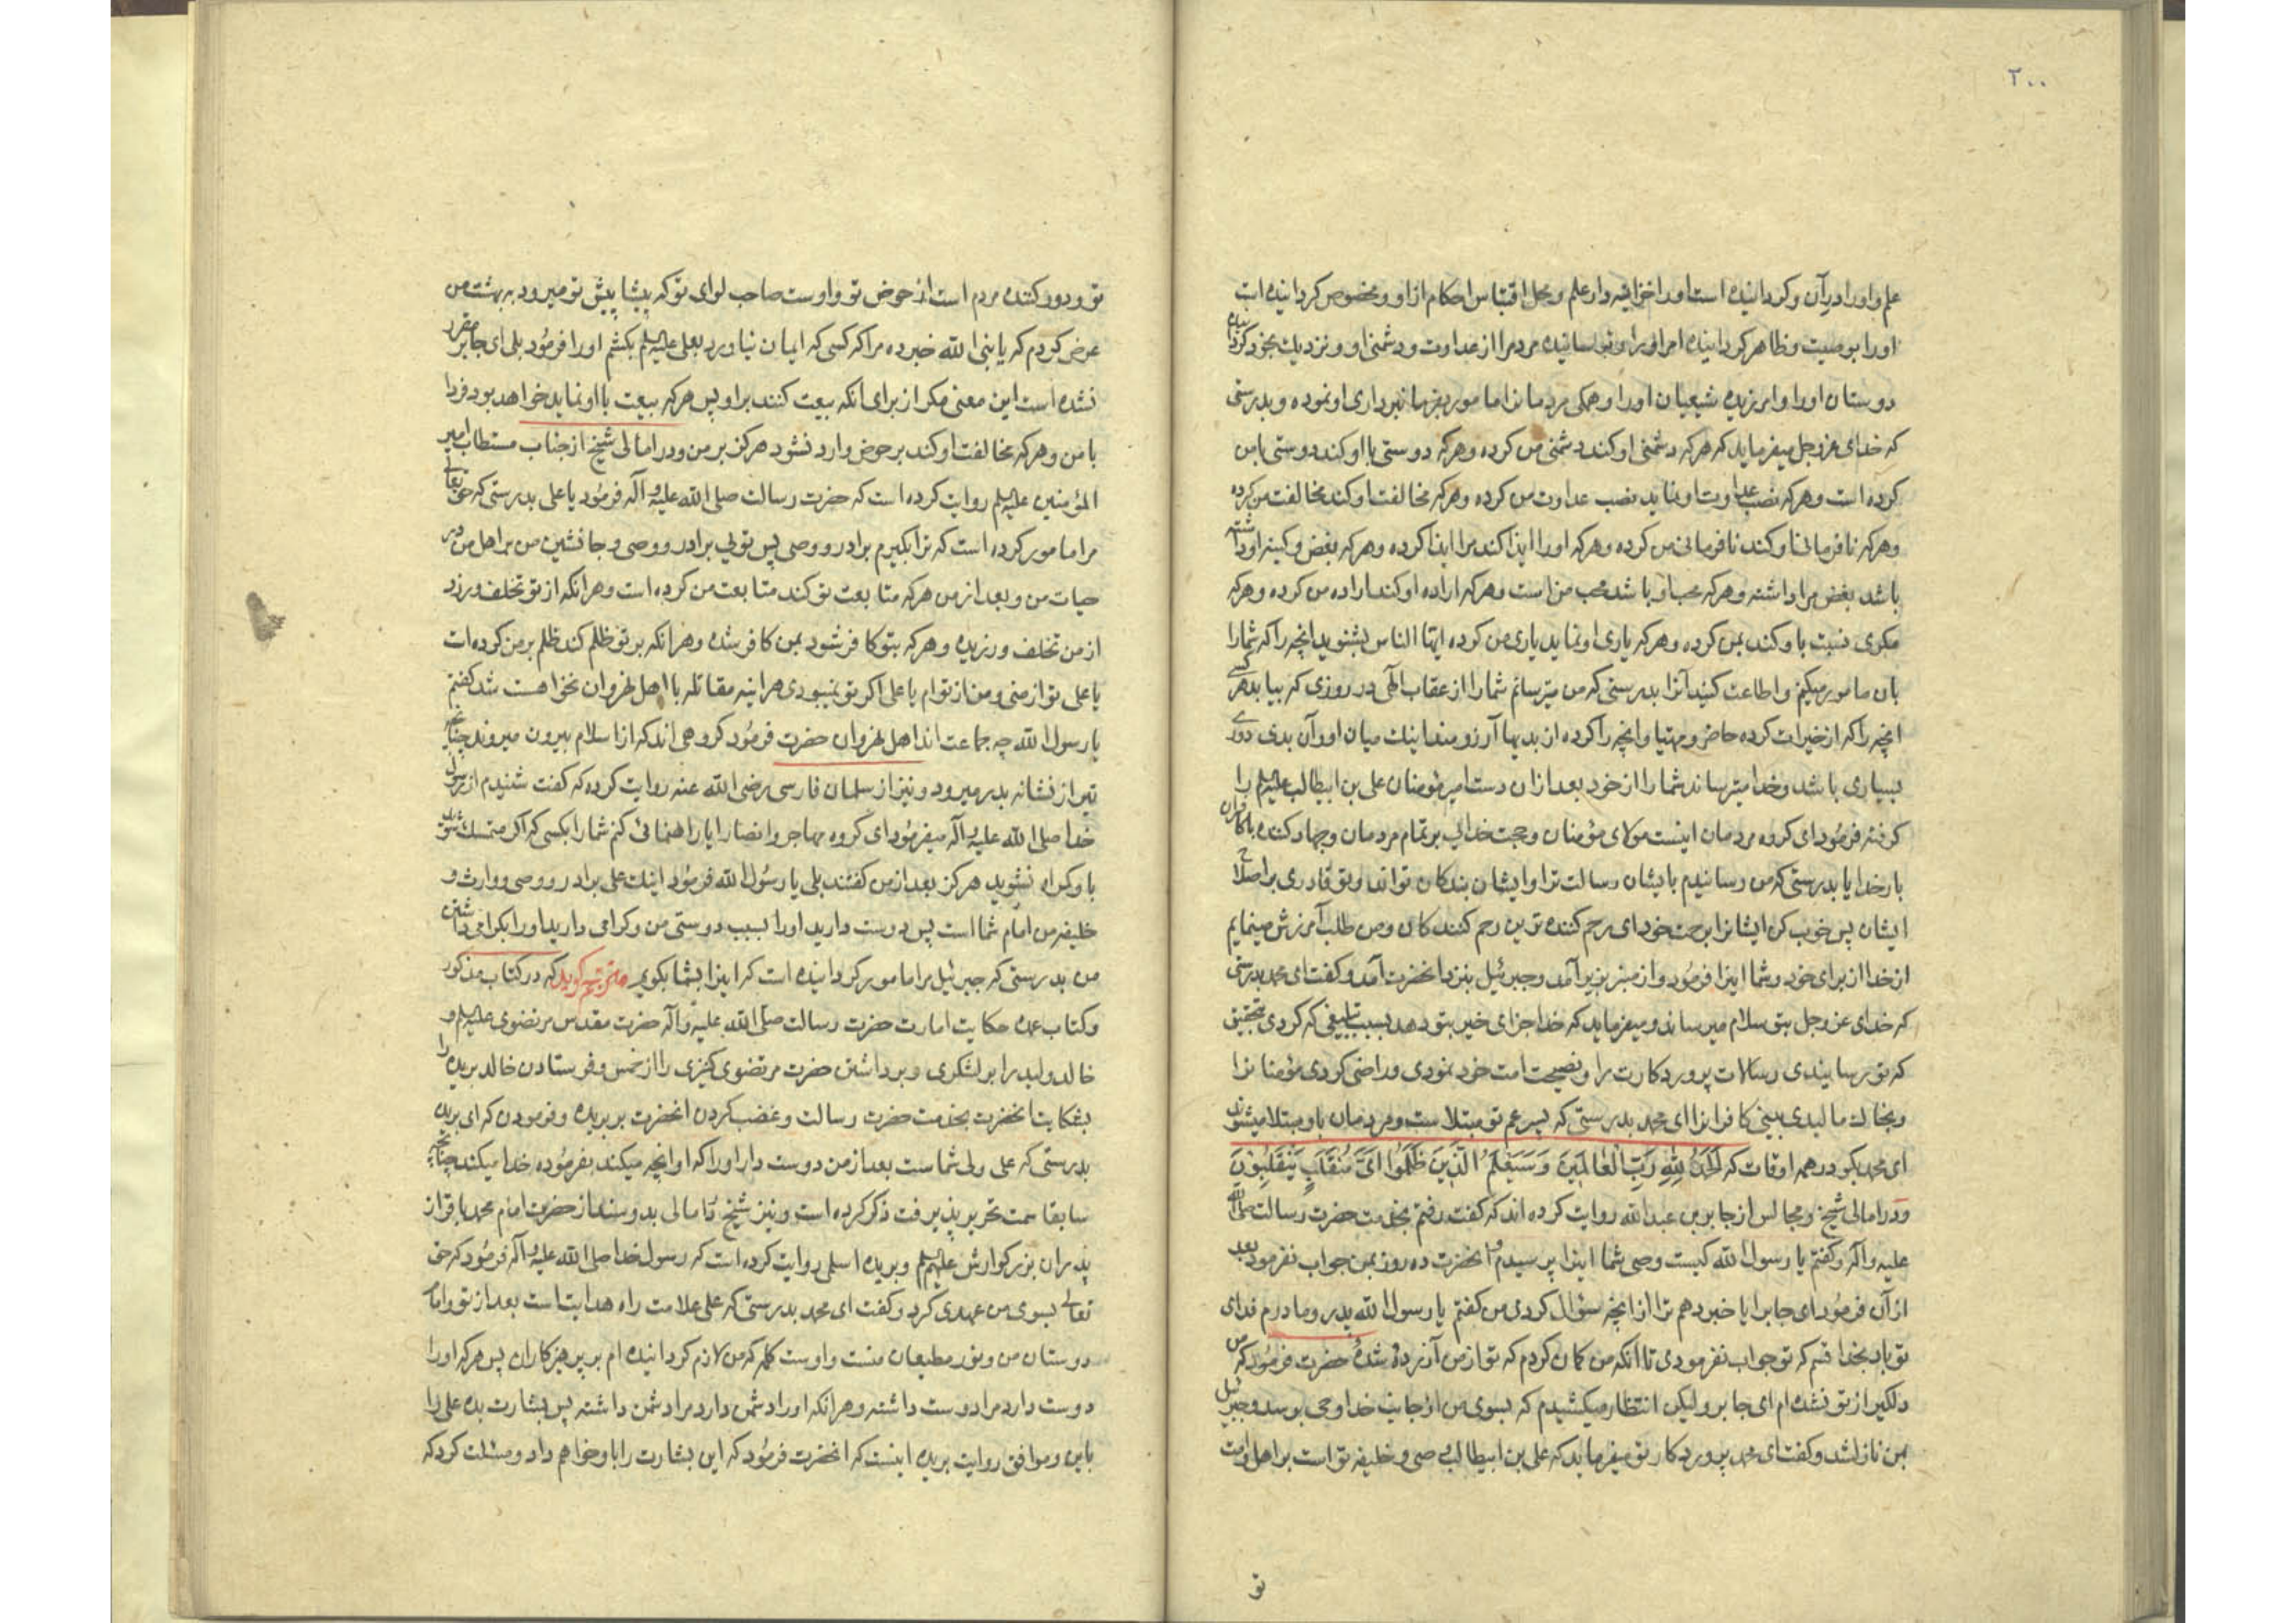 ۲۰۰
علم و او را در آن و گردانیده است او را خزانه دار علم و محل اقتباس احکام از او و مخصوص گردانیده است
او را بوصیت و ظاهر گردانیده امر او را و ترسانیده مردم را از عداوت و دشمنی او و نزدیك بخود گردانیده
دوستان او را و آمرزیده شیعیان او را و همکی مردمانرا مامور بفرمانبرداری او نموده و بدرستی
که خدای عزوجل میفرماید که هرکه دشمنی او کند دشمنی من کرده و هرکه دوستی با او کند دوستی با من
کرده است و هرکه نصب عداوت او نماید نصب عداوت من کرده و هرکه مخالفت او کند مخالفت من کرده
و هرکه نافرمانی او کند نافرمانی من کرده و هرکه او را ایذا کند مرا ایذا کرده و هرکه بغض و کینه او داشته
باشد بغض مرا داشته و هرکه محب او باشد محب من است و هرکه اراده او کند اراده من کرده و هرکه
مکری نسبت باو کند بمن کرده و هرکه یاری او نماید یاری من کرده ایها الناس بشنوید انچه را که شما را
بان مامور میکنم و اطاعت کنید آنرا بدرستی که من میترسانم شما را از عقاب الهی در روزی که بیابد هر کسی
انچه را که از خیرات کرده حاضر و مهیا و انچه را کرده از بدیها آرزومند اینك میان او و آن بدی دوری
بسیاری باشد و خدا میترساند شما را از خود بعد ازان دست امیر مؤمنان علی بن ابیطالب علیه السلم را
گرفته فرمود ای گروه مردمان اینست مولای مؤمنان و حجت خدای بر تمام مردمان و جهاد کننده با کافران
بار خدایا بدرستی که من رسانیدم بایشان رسالت ترا و ایشان بندکان تواند و تو قادری بر اصلاح
ایشان پس خوب کن ایشانرا برحمت خود ای رحم کننده ترین رحم کنندکان و من طلب آمرزش مینمایم
از خدا از برای خود و شما اینرا فرمود و از منبر بزیر آمد و جبرئیل بنزد انحضرت آمد و کفت ای محمد بدرستی
که خدای عزوجل بتو سلام میرساند و میفرماید که خدا جزای خیر بتو دهد بسبب تبلیغی که کردی بتحقیق
که تو رسانیدی رسالات پروردکارت را و نصیحت امت خود نمودی و راضی کردی مؤمنانرا
و بخاك مالیدی بینی کافرانرا ای محمد بدرستی که پسر عم تو مبتلا ست و مردمان باو مبتلا میشوند
ای محمد بکو در همه اوقات که اَلْحَمْدُ لِلّٰهِ رَبِّ الْعَالَمِینَ وَسَیَعْلَمُ الَّذِینَ ظَلَمُوا اَیَّ مُنْقَلَبٍ یَنْقَلِبُونَ
و در امالی شیخ و مجالس از جابر بن عبدالله روایت کرده اند که کفت رفتم بخدمت حضرت رسالت صلی الله
علیه و آله و کفتم یا رسول الله کیست وصی شما اینرا پرسیدم و انحضرت ده روز بمن جواب نفرمود بعد
از آن فرمود ای جابر ایا خبر دهم ترا از انچه سؤال کردی من کفتم یا رسول الله پدر و مادرم فدای
تو باد بخدا قسم که تو جواب نفرمودی تا آنکه من کمان کردم که تو از من آزرده شدهٔ حضرت فرمود که من
دلکیر از تو نشده ام ای جابر ولیکن انتظار میکشیدم که بسوی من از جانب خدا وحی برسد و جبرئیل
بمن نازل شد و کفت ای محمد پروردکار تو میفرماید که علی بن ابیطالب وصی و خلیفه تو است بر اهل و امت
تو
تو و دور کننده مردم است از حوض تو و اوست صاحب لوای تو که پیشاپیش تو میرود به بهشت من
عرض کردم که یا نبی الله خبر ده مرا که کسی که ایمان نیاورد بعلی علیه السلم بکشم او را فرمود بلی ای جابر مقرر
نشده است این معنی مکر از برای آنکه بیعت کنند براو پس هرکه بیعت با او نماید خواهد بود فردا
با من و هرکه مخالفت او کند بر حوض وارد نشود هرکز بر من و در امالی شیخ از جناب مستطاب امیر
المؤمنین علیه السلم روایت کرده است که حضرت رسالت صلی الله علیه و آله فرمود یا علی بدرستی که حق تعالی
مرا مامور کرده است که ترا بکیرم برادر و وصی پس توئی برادر و وصی و جانشین من بر اهل من در
حیات من و بعد از من هرکه متابعت تو کند متابعت من کرده است و هر انکه از تو تخلف ورزد
از من تخلف ورزیده و هرکه بتو کافر شود بمن کافر شده و هر انکه بر تو ظلم کند ظلم بر من کرده است
یا علی تو از منی و من از توام یا علی اکر تو نمیبودی هراینه مقاتله با اهل نهروان نخواهست شد کفتم
یا رسول الله چه جماعت اند اهل نهروان حضرت فرمود کروهی اند که از اسلام بیرون میروند چنانچه
تیر از نشانه بدر میرود و نیز از سلمان فارسی رضی الله عنه روایت کرده که کفت شنیدم از رسول
خدا صلی الله علیه و آله میفرمود ای کروه مهاجر و انصار ایا راهنمائی کنم شما را بکسی که اکر متمسك شوید
باو کمراه نشوید هرکز بعد از من کفتند بلی یا رسول الله فرمود اینك علی برادر و وصی و وارث و
خلیفه من امام شما است پس دوست دارید او را بسبب دوستی من و کرامی دارید او را بکرامی داشتن
من بدرستی که جبرئیل مرا مامور کردانیده است که اینرا بشما بکویم مترجم کوید که در کتاب مذکور
و کتاب عمده حکایت امارت حضرت رسالت صلی الله علیه و آله حضرت مقدس مرتضوی علیه السلم و
خالد ولید را بر لشکری و برداشتن حضرت مرتضوی کنیزی را از خمس و فرستادن خالد بریده را
بشکایت انحضرت بخدمت حضرت رسالت و غضب کردن انحضرت بر بریده و فرمودن که ای بریده
بدرستی که علی ولی شماست بعد از من دوست دار او را که او انچه میکند بفرموده خدا میکند چنانچه
سابقا سمت تحریر پذیرفت ذکر کرده است و نیز شیخ در امالی بدو سند از حضرت امام محمد باقر از
پدران بزرکوارش علیهم السلم و بریده اسلمی روایت کرده است که رسول خدا صلی الله علیه و آله فرمود که حق
تعالی بسوی من عهدی کرد و کفت ای محمد بدرستی که علی علامت راه هدایت است بعد از تو و امام
دوستان من و نور مطیعان منست و اوست کلمه که من لازم کردانیده ام بر پرهیزکاران پس هرکه او را
دوست دارد مرا دوست داشته و هر انکه او را دشمن دارد مرا دشمن داشته پس بشارت بده علی را
باین و موافق روایت بریده اینست که انحضرت فرمود که این بشارت را باو خواهم داد و مسئلت کرد که